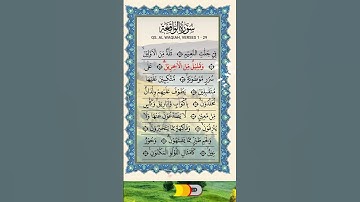 سُورَةُ الْوَاقِعَةِ
QS. AL WAQIAH, VERSES 1 - 29
فِي جَنّٰتِ النَّعِيمِ ۝ ثُلَّةٌ مِّنَ الْأَوَّلِينَ
۝ وَقَلِيلٌ مِّنَ الْآخِرِينَ ۝ عَلَى
سُرُرٍ مَّوْضُونَةٍ ۝ مُّتَّكِئِينَ عَلَيْهَا
مُتَقٰبِلِينَ ۝ يَطُوفُ عَلَيْهِمْ وِلْدَانٌ
مُّخَلَّدُونَ ۝ بِأَكْوَابٍ وَأَبَارِيقَ وَكَأْسٍ
مِّن مَّعِينٍ ۝ لَّا يُصَدَّعُونَ عَنْهَا وَلَا
يُنزِفُونَ ۝ وَفَاكِهَةٍ مِّمَّا يَتَخَيَّرُونَ
۝ وَلَحْمِ طَيْرٍ مِّمَّا يَشْتَهُونَ ۝ وَحُورٌ
عِينٌ ۝ كَأَمْثَالِ اللُّؤْلُؤِ الْمَكْنُونِ ۝